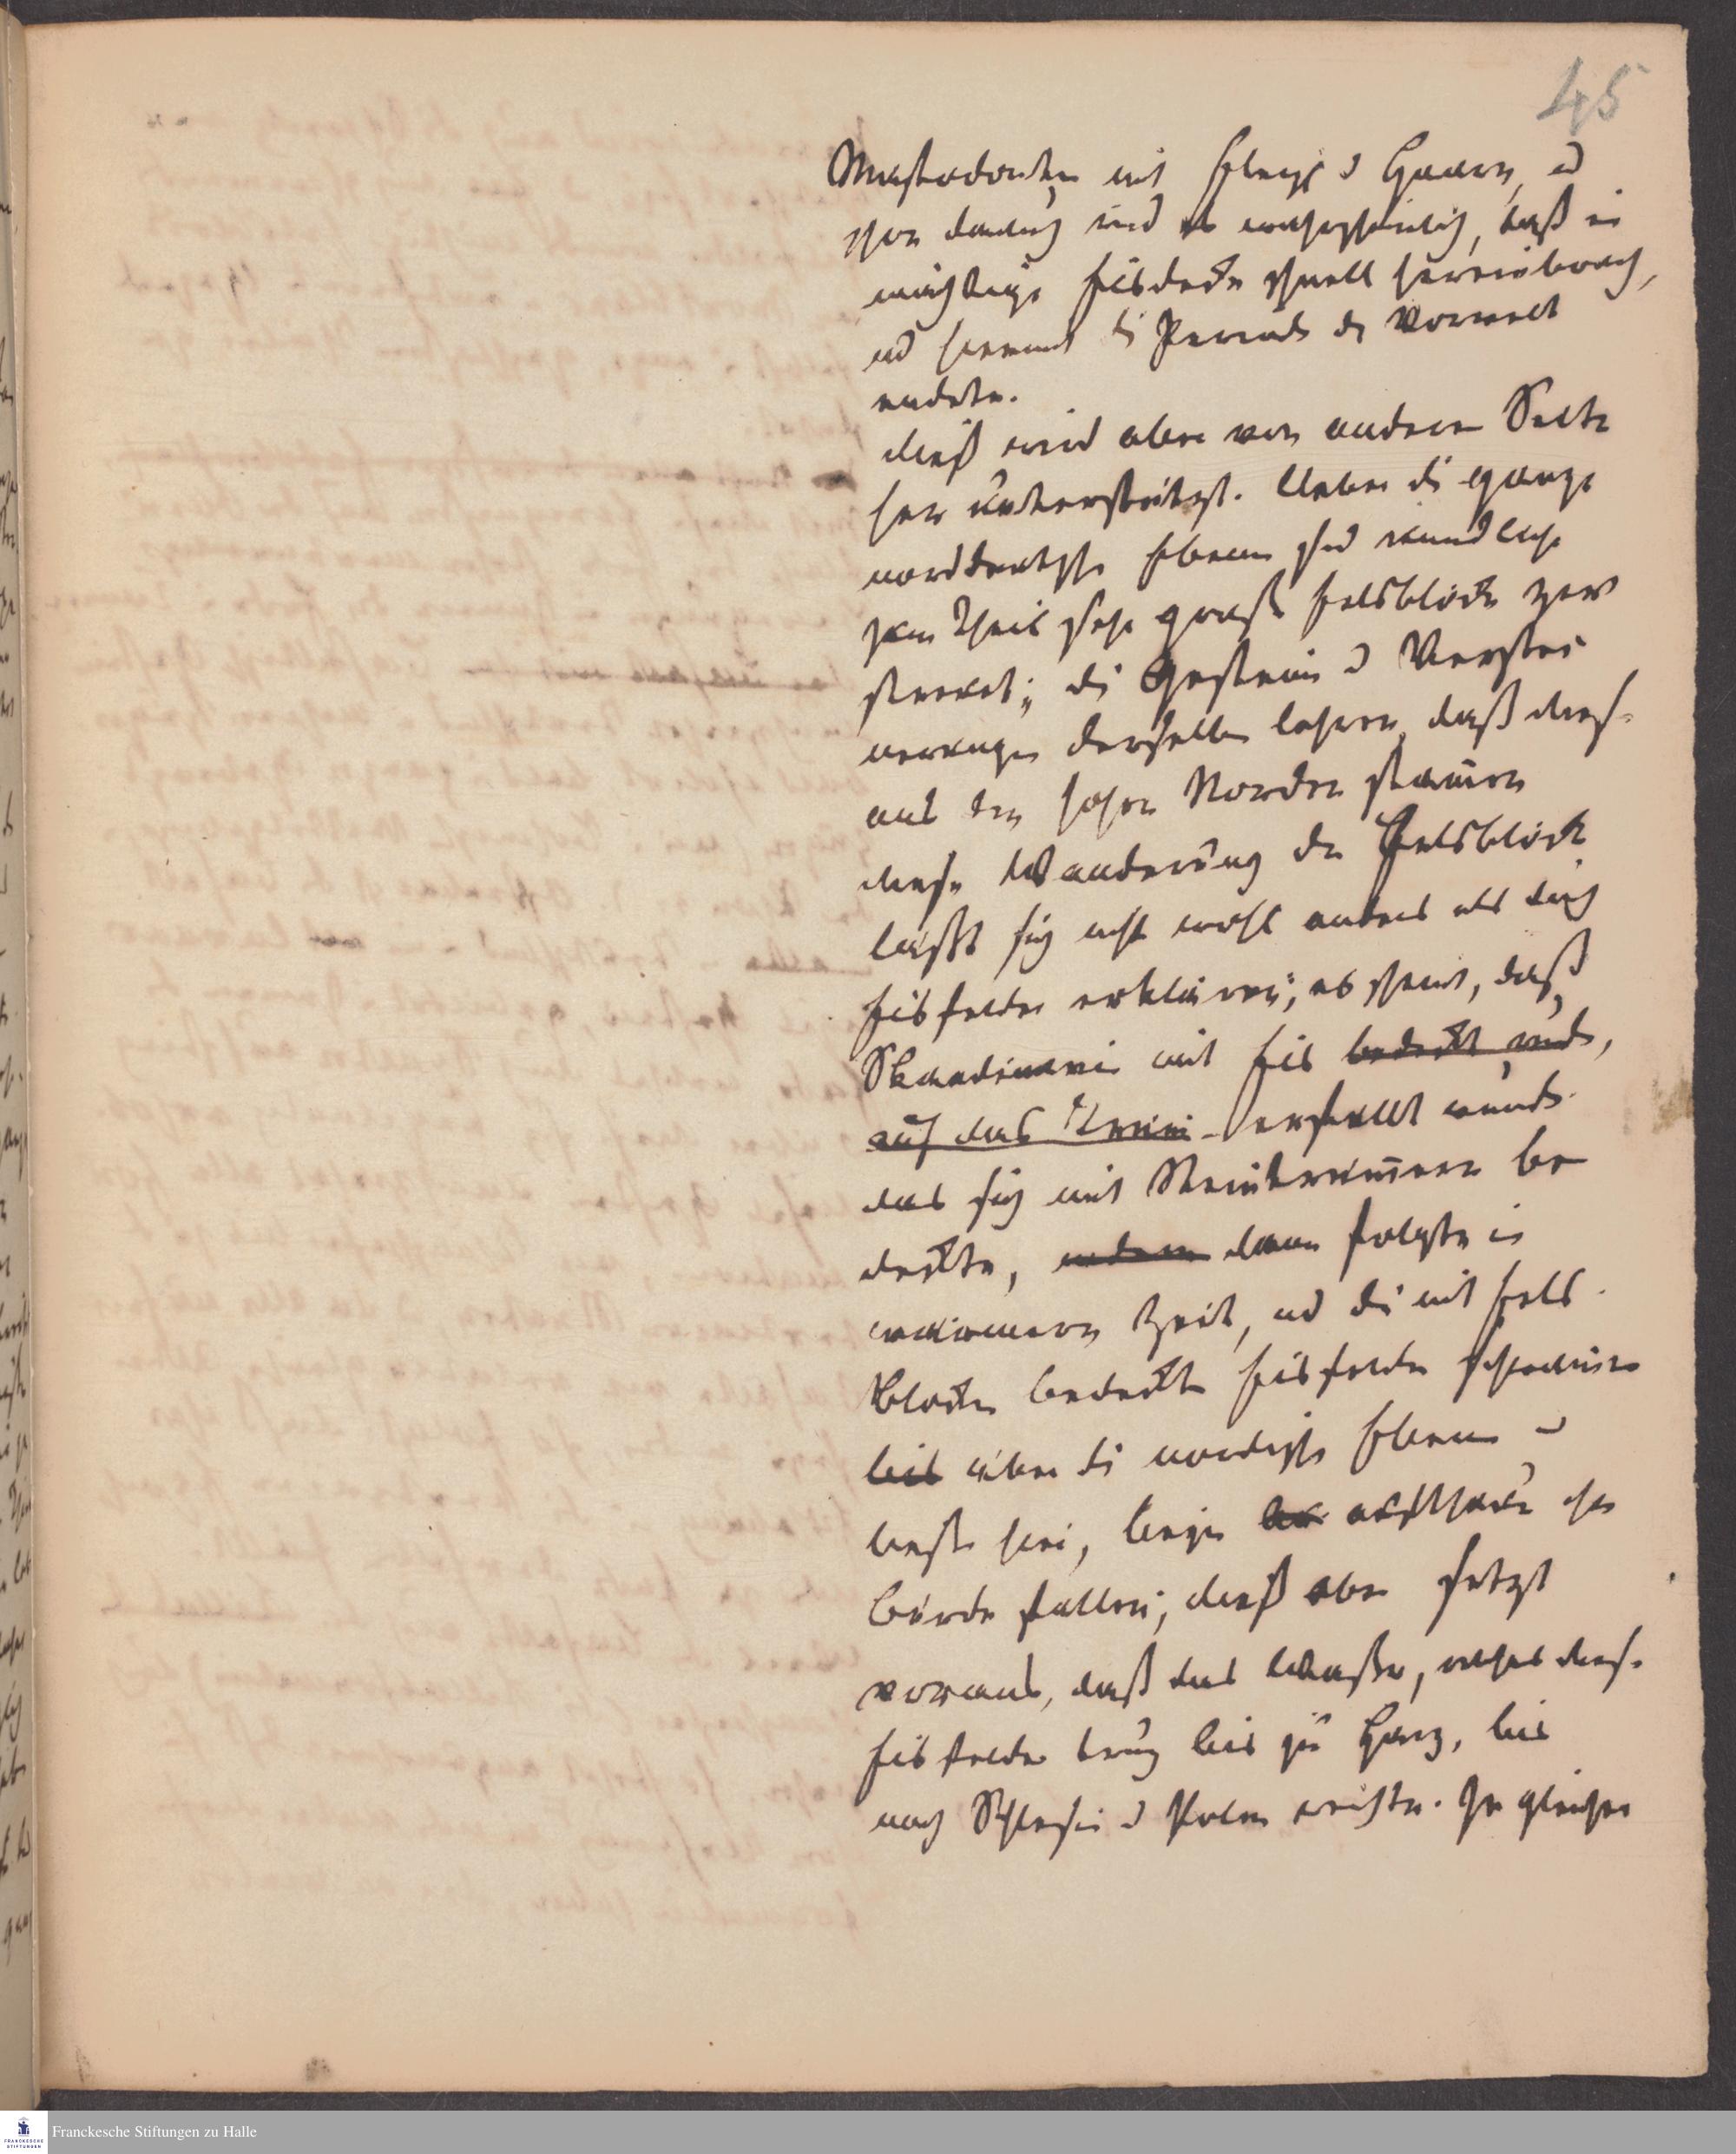 45
Mastodonten mit Fleisch u Haaren, u
schon dadurch wird es wahrscheinlich, daß ein
mächtige Eisdecke schnell hereinbrach,
und hiermit die Periode der Vorwelt
endete.
dieß wird aber von anderer Seite
her unterstützt. Ueber die ganze
norddeutsche Ebene sind
zum Theil sehr große Felsblöcke zer
streuet; die Gestein u Verstei
nerungen derselben lehren, daß diese
aus dem hohen Norden stammen
diese Wanderung der Felsblöcke
läßt sich nicht wohl anders als durch
Eisfelder erklären; es scheint, daß
Skandinavien mit Eis bedeckt wurde,
auf das erfüllt wurde
das sich mit Steintrümmern be
deckte, indem dann folgte ein
wärmere Zeit, und die mit Fels
blöcken bedeckten Eisfelder schwammen
bis über die nordische Ebene u
ließen hier, ihre
Bürde fallen; dieß aber setzt
voraus, daß das Wasser, welches diese
Eisfelder trug bis zum Harz, bis
nach Schlesien u Polen reichte. In gleicher
Franckesche Stiftungen zu Halle
FRANCKESCHE
STIFTUNGEN